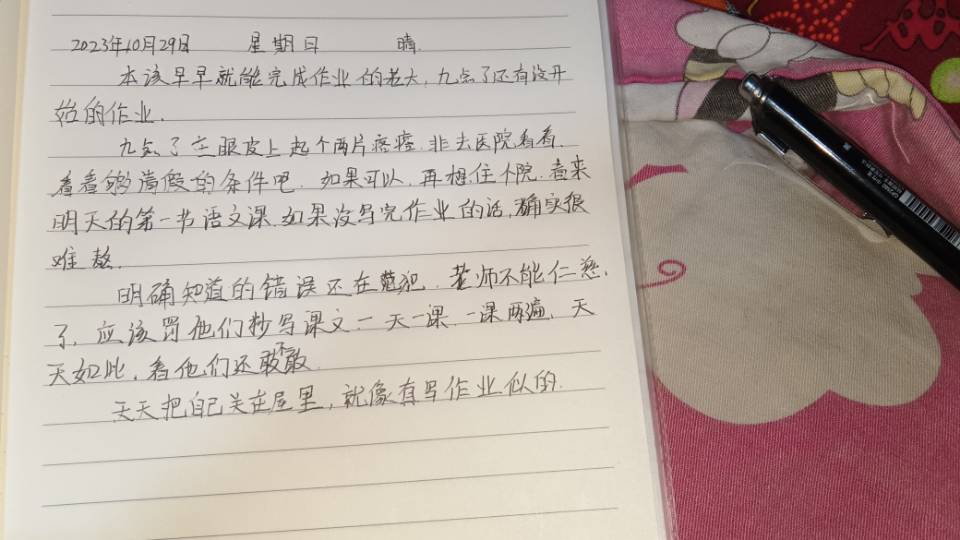 2023年10月29日 星期日 晴.
本该早早就能完成作业的老大,九点了还有没开
始的作业.
九点了在眼皮上起个两片疙瘩.非去医院看看.
看看够请假的条件吧.如果可以,再想住个院.看来
明天的第一节语文课.如果没写完作业的话,确实很
难熬.
明确知道的错误还在犯.老师不能仁慈.
了.应该罚他们抄写课文.一天一课.一课两遍.天
天如此.看他们还敢不敢
天天把自己关在屋里,就像有写作业似的.